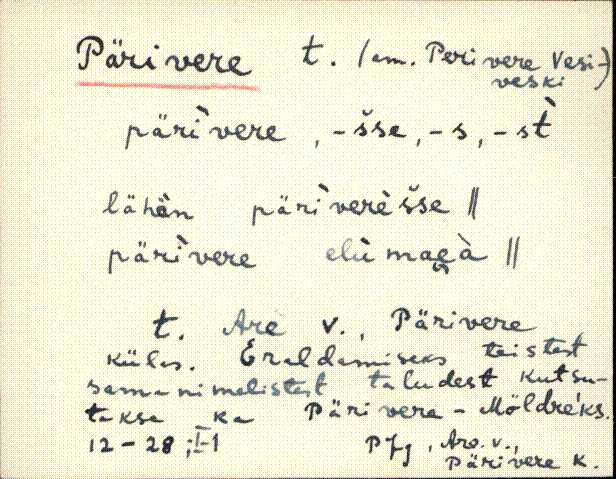 Pärivere t. (am. Perivere Vesi-
veski)
päri̇̀vere, -s̆se, -s, -st̀
lähèn päri̇̀verès̆se ||
päri̇̀vere elù maeà̯ ||
t. Are v., Pärivere
külas. Eraldamiseks teistest
samanimelistest taludest kutsu-
takse ka Pärivere-Möldreks.
12-28; I-1 Are. v.,
Pärivere k.